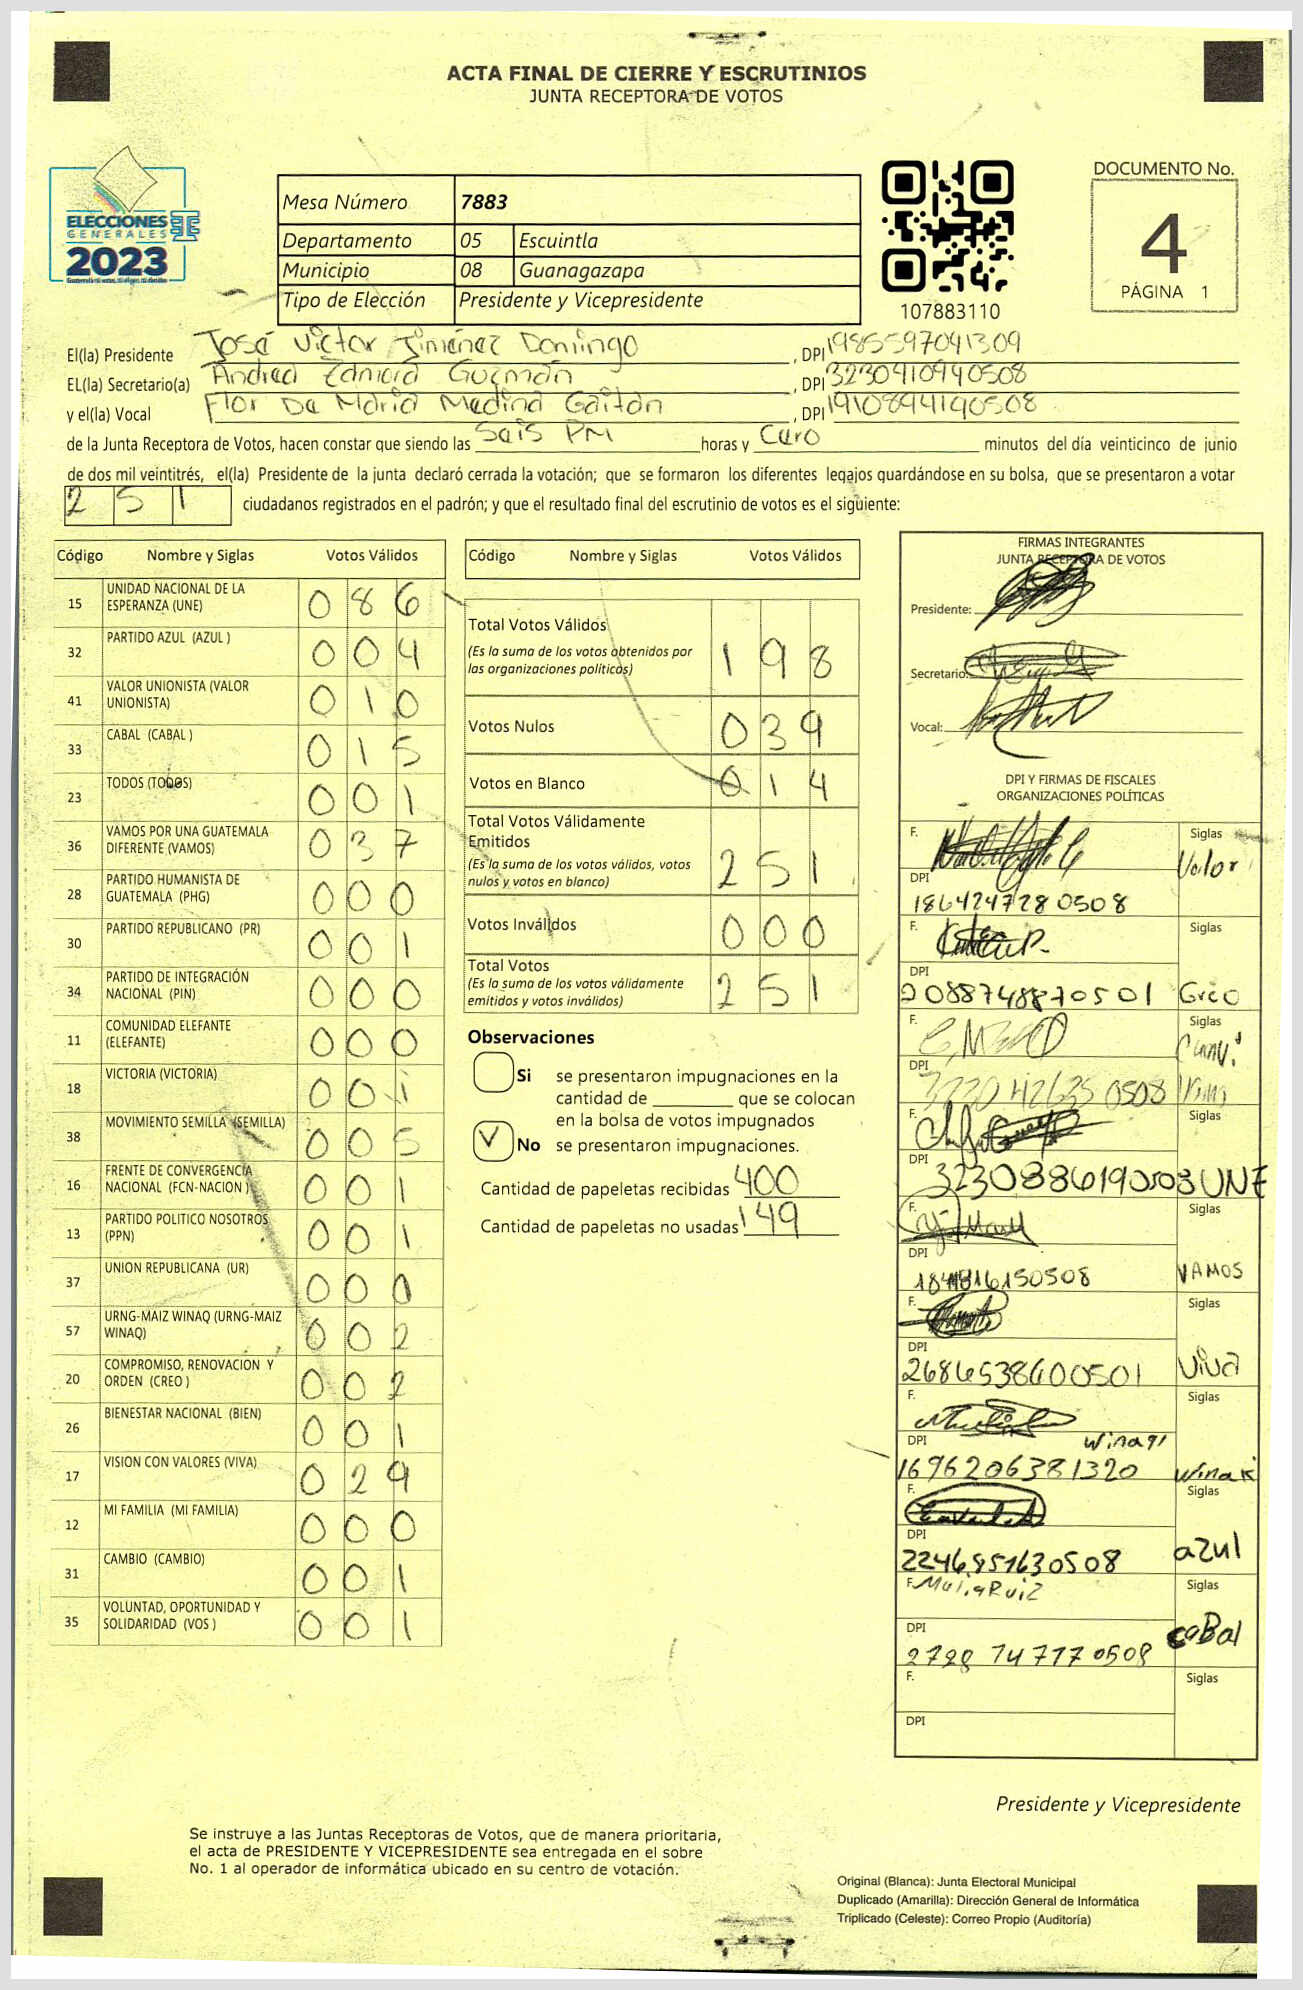 ACTA FINAL DE CIERRE Y ESCRUTINIOS
JUNTA RECEPTORA DE VOTOS
ELECCIONES
GENERALES
2023
Mesa Número 7883
Departamento 05 Escuintla
Municipio 08 Guanagazapa
Tipo de Elección Presidente y Vicepresidente
107883110
DOCUMENTO No.
4
PÁGINA 1
El(la) Presidente José Victor Jiménez Domingo, DPI 1985597041309
EL(la) Secretario(a) Andrea Guzmán, DPI 3230410940508
y el(la) Vocal Flor De Maria Medina Gaitan, DPI 1910894190508
de la Junta Receptora de Votos, hacen constar que siendo las Seis PM horas y Cero minutos del día veinticinco de junio
de dos mil veintitrés, el(la) Presidente de la junta declaró cerrada la votación; que se formaron los diferentes legajos guardándose en su bolsa, que se presentaron a votar
251 ciudadanos registrados en el padrón; y que el resultado final del escrutinio de votos es el siguiente:
Código Nombre y Siglas Votos Válidos
15 UNIDAD NACIONAL DE LA ESPERANZA (UNE) 086
32 PARTIDO AZUL (AZUL ) 004
41 VALOR UNIONISTA (VALOR UNIONISTA) 010
33 CABAL (CABAL ) 015
23 TODOS (TODOS) 001
36 VAMOS POR UNA GUATEMALA DIFERENTE (VAMOS) 037
28 PARTIDO HUMANISTA DE GUATEMALA (PHG) 000
30 PARTIDO REPUBLICANO (PR) 001
34 PARTIDO DE INTEGRACIÓN NACIONAL (PIN) 000
11 COMUNIDAD ELEFANTE (ELEFANTE) 000
18 VICTORIA (VICTORIA) 001
38 MOVIMIENTO SEMILLA (SEMILLA) 005
16 FRENTE DE CONVERGENCIA NACIONAL (FCN-NACION ) 001
13 PARTIDO POLITICO NOSOTROS (PPN) 001
37 UNION REPUBLICANA (UR) 000
57 URNG-MAIZ WINAQ (URNG-MAIZ WINAQ) 002
20 COMPROMISO, RENOVACION Y ORDEN (CREO ) 002
26 BIENESTAR NACIONAL (BIEN) 001
17 VISION CON VALORES (VIVA) 029
12 MI FAMILIA (MI FAMILIA) 000
31 CAMBIO (CAMBIO) 001
35 VOLUNTAD, OPORTUNIDAD Y SOLIDARIDAD (VOS ) 001
Código Nombre y Siglas Votos Válidos
Total Votos Válidos 198
(Es la suma de los votos obtenidos por
las organizaciones políticas)
Votos Nulos 039
Votos en Blanco 014
Total Votos Válidamente
Emitidos 251
(Es la suma de los votos válidos, votos
nulos y votos en blanco)
Votos Inválidos 000
Total Votos 251
(Es la suma de los votos válidamente
emitidos y votos inválidos)
Observaciones
Si se presentaron impugnaciones en la
cantidad de ________ que se colocan
en la bolsa de votos impugnados
No se presentaron impugnaciones.
Cantidad de papeletas recibidas 400
Cantidad de papeletas no usadas 149
FIRMAS INTEGRANTES
JUNTA RECEPTORA DE VOTOS
Presidente:
Secretario:
Vocal:
DPI Y FIRMAS DE FISCALES
ORGANIZACIONES POLÍTICAS
F. Siglas
Valor
DPI
1864247280508
F. Siglas
DPI
2088748870501 Greo
F. Siglas
DPI
F. Siglas
DPI
3230886190508 UNE
F. Siglas
DPI
VAMOS
F. Siglas
DPI
2684538600501 Viva
F.
DPI Winaqi
1696206381320 Winak
F. Siglas
DPI
2246851630508 azul
F. Maria Ruiz Siglas
DPI
2728 74777 0508 caBal
F. Siglas
DPI
Presidente y Vicepresidente
Se instruye a las Juntas Receptoras de Votos, que de manera prioritaria,
el acta de PRESIDENTE Y VICEPRESIDENTE sea entregada en el sobre
No. 1 al operador de informática ubicado en su centro de votación.
Original (Blanca): Junta Electoral Municipal
Duplicado (Amarilla): Dirección General de Informática
Triplicado (Celeste): Correo Propio (Auditoría)